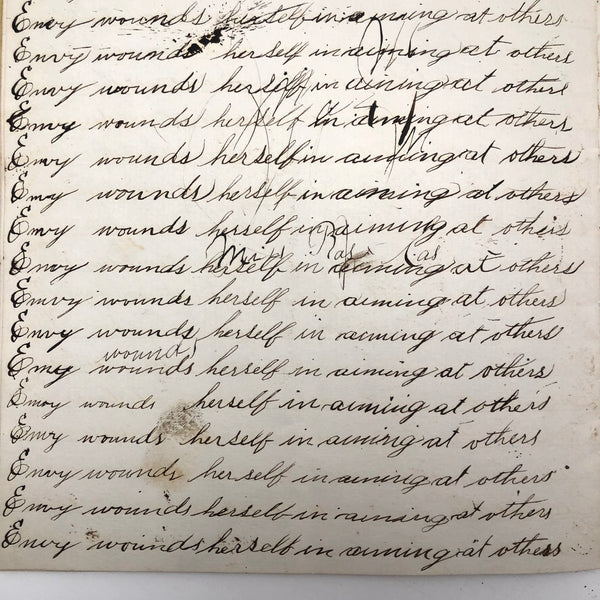 Envy wounds herself in aiming at others
Envy wounds herself in aiming at others
Envy wounds herself in aiming at others
Envy wounds herself in aiming at others
Envy wounds herself in aiming at others
Envy wounds herself in aiming at others
Envy wounds herself in aiming at others
Miss
Envy wounds herself in aiming at others
Envy wounds herself in aiming at others
Envy wounds herself in aiming at others
wounds
Envy wounds herself in aiming at others
Envy wounds herself in aiming at others
Envy wounds herself in aiming at others
Envy wounds her self in aiming at others
Envy wounds herself in aiming at others
Envy wounds herself in aiming at others